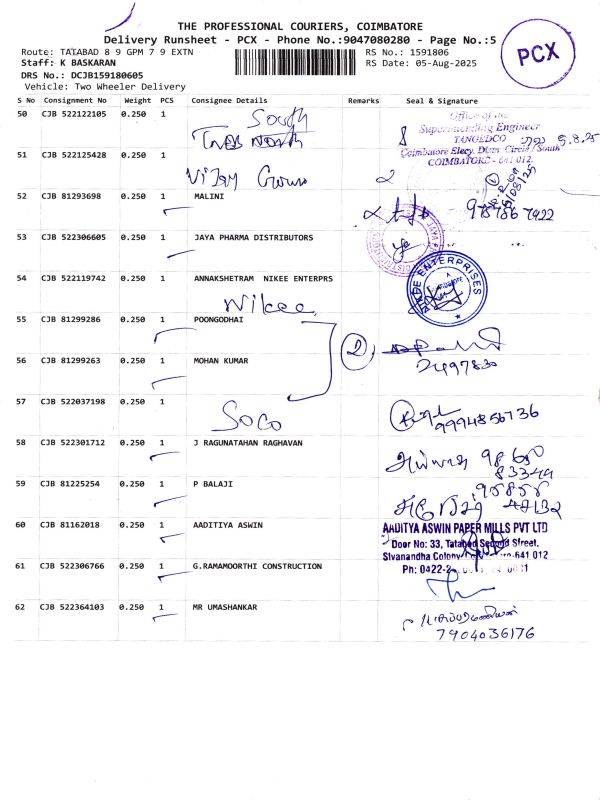 THE PROFESSIONAL COURIERS, COIMBATORE
Delivery Runsheet - PCX - Phone No.:9047080280 - Page No.:5
Route: TATABAD 8 9 GPM 7 9 EXTN
RS No.: 1591806
Staff: K BASKARAN
RS Date: 05-Aug-2025
DRS No.: DCJB159180605
Vehicle: Two Wheeler Delivery
PCX
S No Consignment No Weight PCS Consignee Details Remarks Seal & Signature
50 CJB 522122105 0.250 1 South
Office of the
Superintending Engineer
TANGEDCO 5.8.25
Coimbatore Elecy. Distn. Circle/South
COIMBATORE - 641 012.
51 CJB 522125428 0.250 1
52 CJB 81293698 0.250 1 MALINI
53 CJB 522306605 0.250 1 JAYA PHARMA DISTRIBUTORS
54 CJB 522119742 0.250 1 ANNAKSHETRAM NIKEE ENTERPRS
Nikee
NIKEE ENTERPRISES
Coimbatore
55 CJB 81299286 0.250 1 POONGODHAI
2
56 CJB 81299263 0.250 1 MOHAN KUMAR
2497830
57 CJB 522037198 0.250 1
SOCO
9994856736
58 CJB 522301712 0.250 1 J RAGUNATHAN RAGHAVAN
59 CJB 81225254 0.250 1 P BALAJI
60 CJB 81162018 0.250 1 AADITIYA ASWIN
AADITYA ASWIN PAPER MILLS PVT LTD
Door No: 33, Tatabad Second Street,
Sivanandha Colony 641 012
Ph: 0422-2
61 CJB 522306766 0.250 1 G.RAMAMOORTHI CONSTRUCTION
62 CJB 522364103 0.250 1 MR UMASHANKAR
7904036176